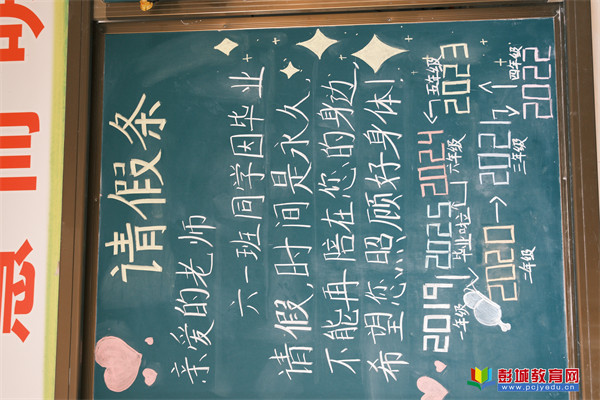 请假条
亲爱的老师
六一班同学因毕业
请假,时间是永久,
不能再陪在您的身边
希望您照顾好身体!
2019 2025 2024 五年级
一年级 毕业啦 六年级 2023
2020 → 2021 四年级
二年级 三年级 2022
彭城教育网